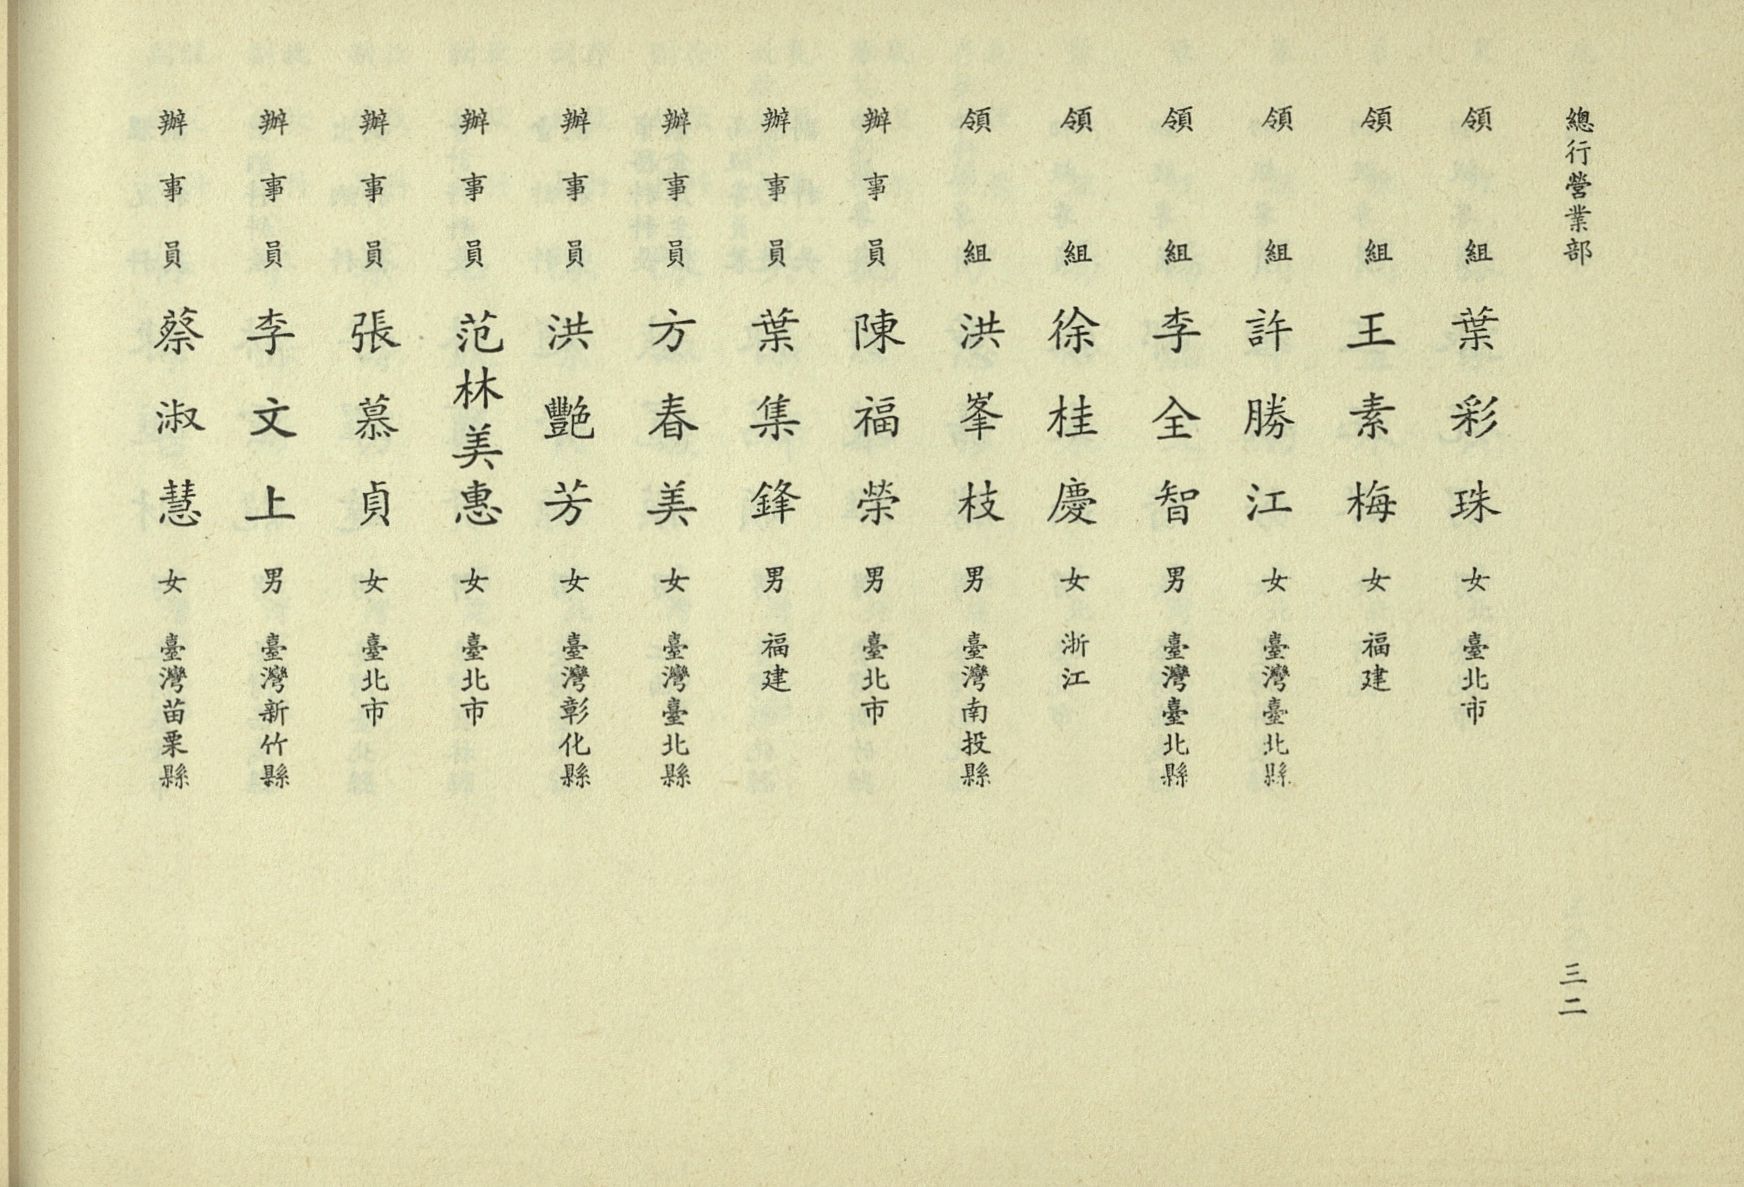 總行營業部
三二
領組 葉彩珠 女 臺北市
領組 王素梅 女 福建
領組 許勝江 女 臺灣臺北縣
領組 李全智 男 臺灣臺北縣
領組 徐桂慶 女 浙江
領組 洪峯枝 男 臺灣南投縣
辦事員 陳福榮 男 臺北市
辦事員 葉集鋒 男 福建
辦事員 方春美 女 臺灣臺北縣
辦事員 洪艷芳 女 臺灣彰化縣
辦事員 范林美惠 女 臺北市
辦事員 張慕貞 女 臺北市
辦事員 李文上 男 臺灣新竹縣
辦事員 蔡淑慧 女 臺灣苗栗縣